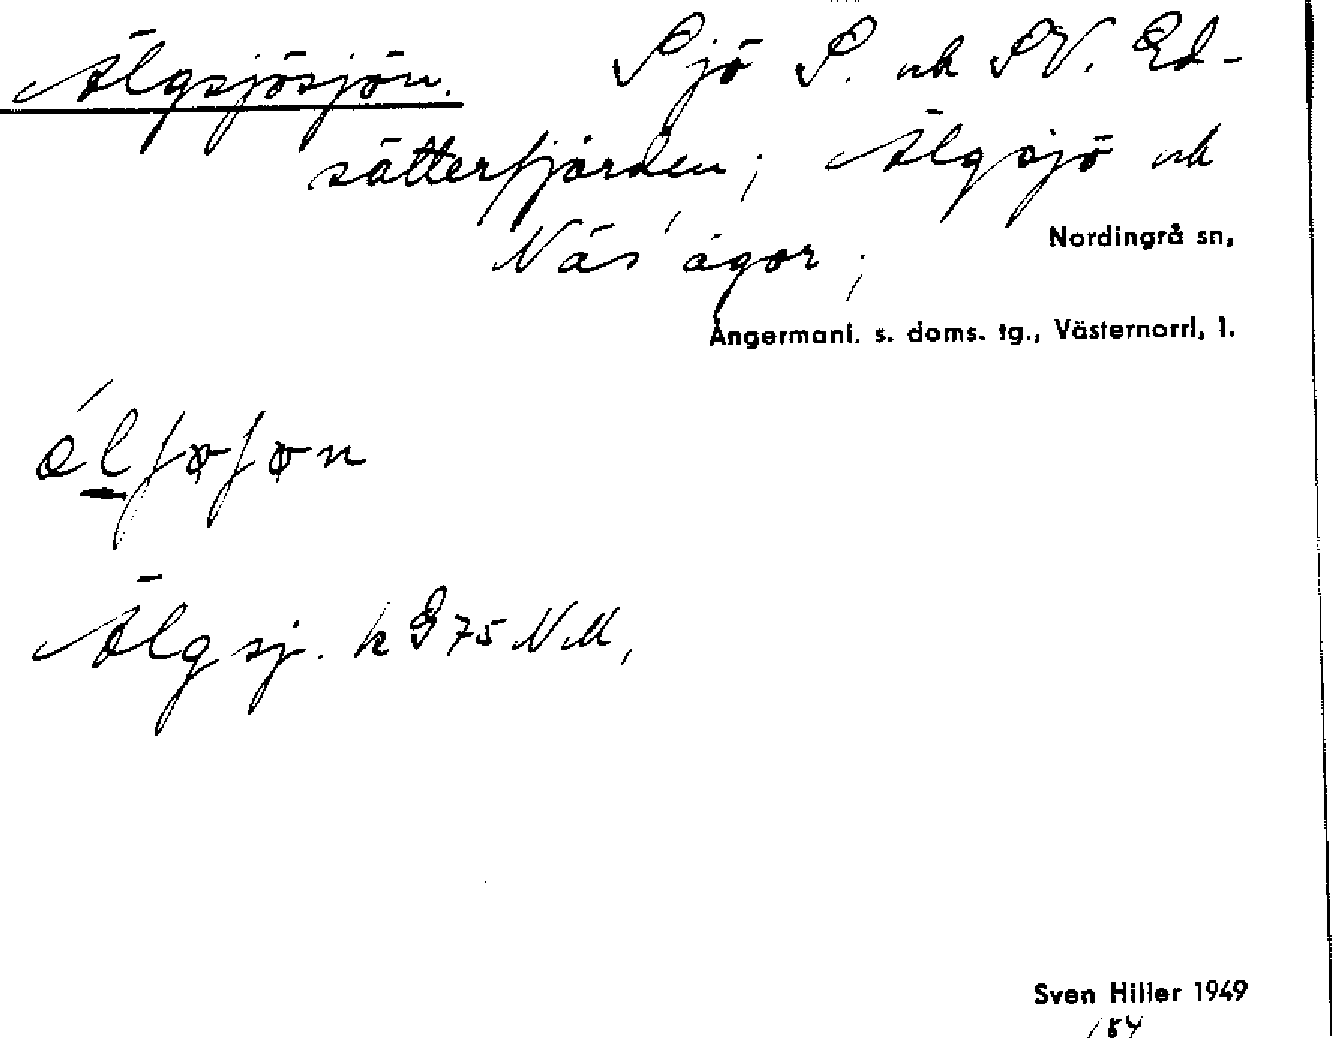 Älgsjösjön. Sjö S. och SV. Ed-
sätterfjärden; Älgsjö och
Näs' ägor;
Nordingrå sn,
Ångermanl. s. doms. tg., Västernorrl. l.
Älgsj. k G 75 NM,
Sven Hiller 1949
184